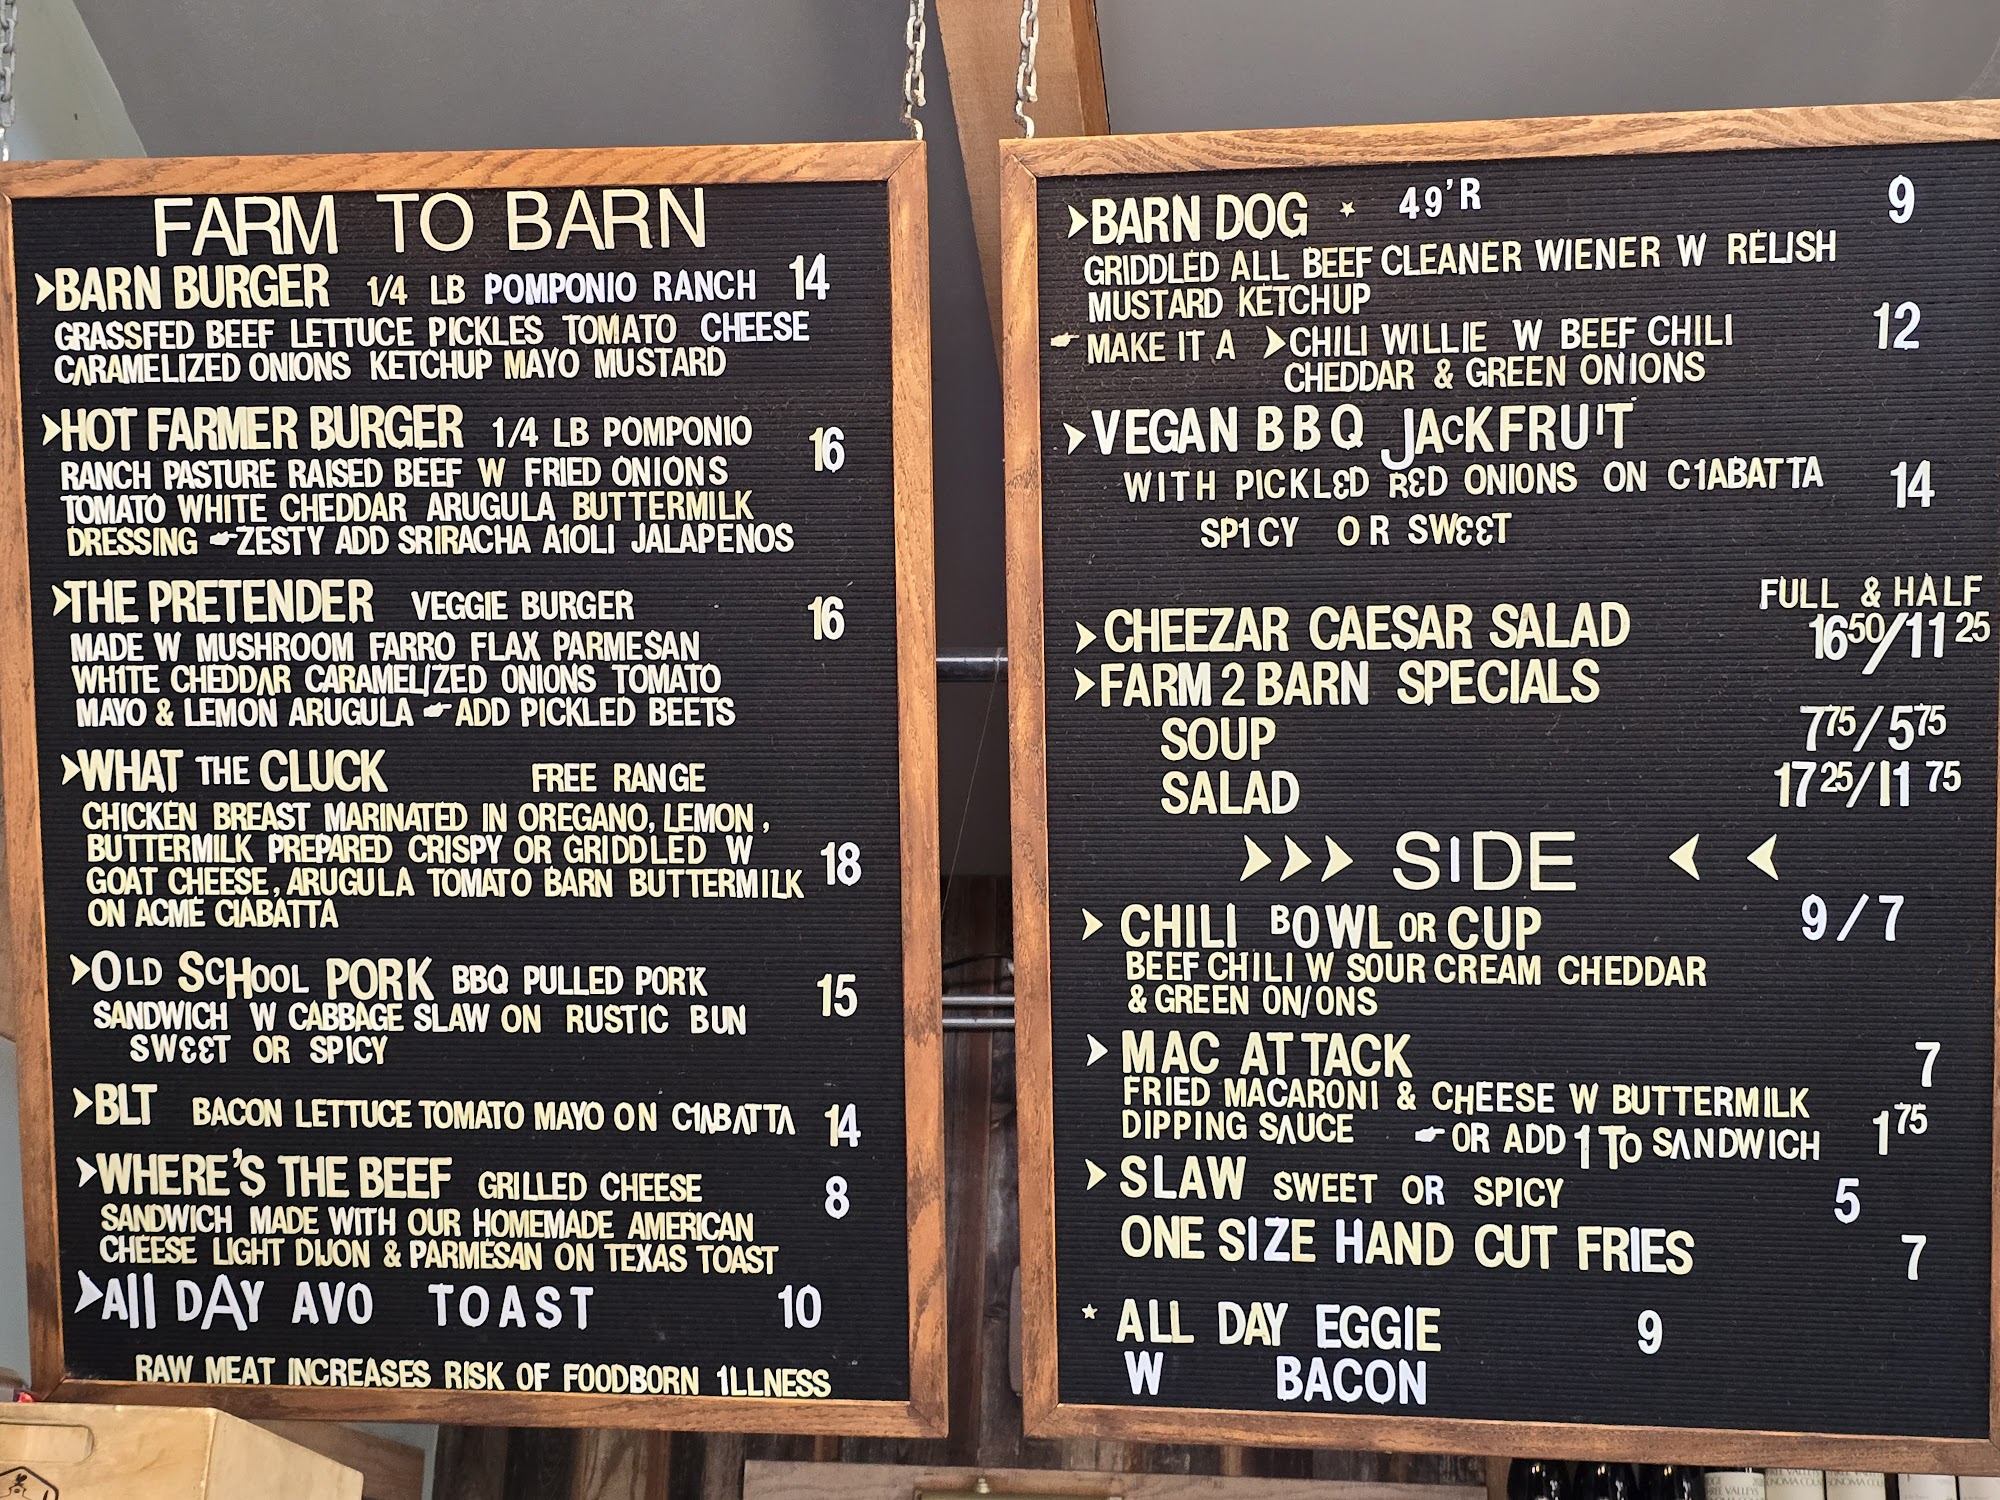 FARM TO BARN
BARN BURGER 1/4 LB POMPONIO RANCH 14
GRASSFED BEEF LETTUCE PICKLES TOMATO CHEESE
CARAMELIZED ONIONS KETCHUP MAYO MUSTARD
HOT FARMER BURGER 1/4 LB POMPONIO 16
RANCH PASTURE RAISED BEEF W FRIED ONIONS
TOMATO WHITE CHEDDAR ARUGULA BUTTERMILK
DRESSING ☛ZESTY ADD SRIRACHA A1OLI JALAPENOS
THE PRETENDER VEGGIE BURGER 16
MADE W MUSHROOM FARRO FLAX PARMESAN
WH1TE CHEDDAR CARAMELIZED ONIONS TOMATO
MAYO & LEMON ARUGULA ☛ ADD PICKLED BEETS
WHAT THE CLUCK FREE RANGE
CHICKEN BREAST MARINATED IN OREGANO, LEMON,
BUTTERMILK PREPARED CRISPY OR GRIDDLED W 18
GOAT CHEESE, ARUGULA TOMATO BARN BUTTERMILK
ON ACME CIABATTA
OLD SCHOOL PORK BBQ PULLED PORK 15
SANDWICH W CABBAGE SLAW ON RUSTIC BUN
SWEET OR SPICY
BLT BACON LETTUCE TOMATO MAYO ON C1ABATTA 14
WHERE'S THE BEEF GRILLED CHEESE 8
SANDWICH MADE WITH OUR HOMEMADE AMERICAN
CHEESE LIGHT DIJON & PARMESAN ON TEXAS TOAST
All DAY AVO TOAST 10
RAW MEAT INCREASES RISK OF FOODBORN 1LLNESS
BARN DOG ★ 49'R 9
GRIDDLED ALL BEEF CLEANER WIENER W RELISH
MUSTARD KETCHUP
☛ MAKE IT A CHILI WILLIE W BEEF CHILI 12
CHEDDAR & GREEN ONIONS
VEGAN BBQ JACKFRUIT
WITH PICKLED RED ONIONS ON C1ABATTA 14
SP1CY OR SWEET
FULL & HALF
CHEEZAR CAESAR SALAD 16 50/11 25
FARM 2 BARN SPECIALS
SOUP 7 75/5 75
SALAD 17 25/11 75
SIDE
CHILI BOWL OR CUP 9/7
BEEF CHILI W SOUR CREAM CHEDDAR
& GREEN ON/ONS
MAC ATTACK 7
FRIED MACARONI & CHEESE W BUTTERMILK
DIPPING SAUCE ☛ OR ADD 1 TO SANDWICH 1 75
SLAW SWEET OR SPICY 5
ONE SIZE HAND CUT FRIES 7
★ ALL DAY EGGIE 9
W BACON